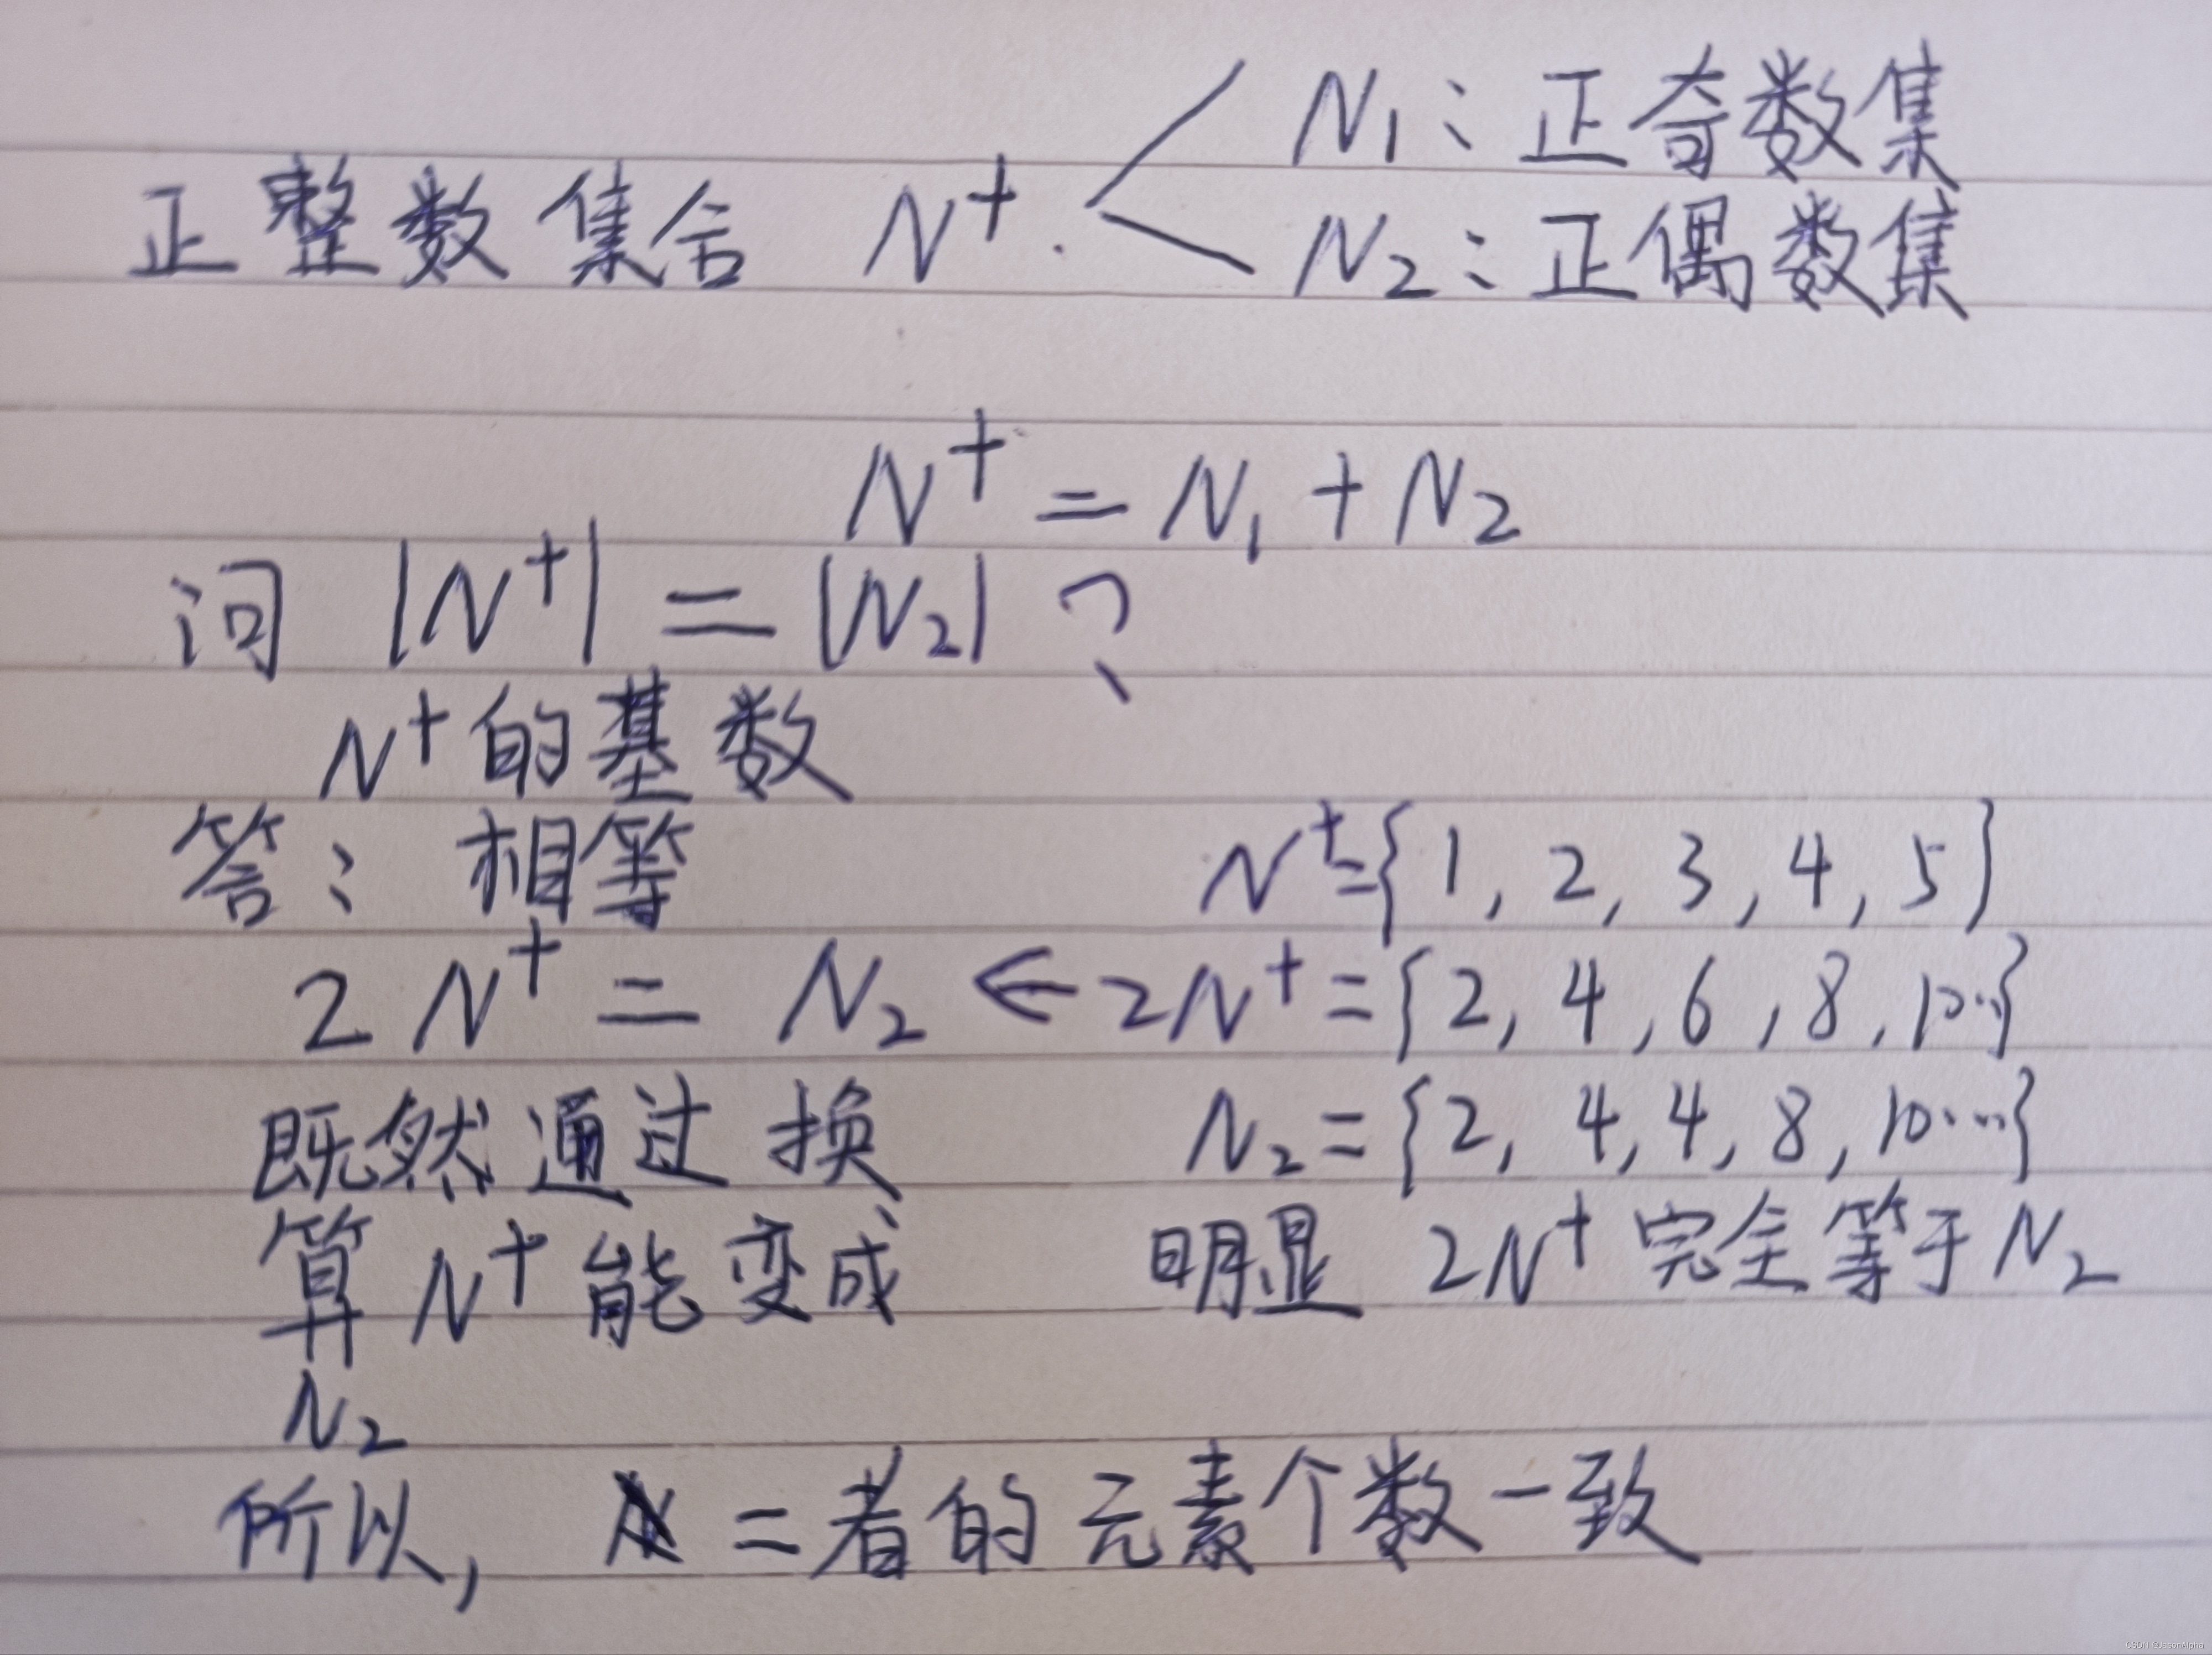 N₁：正奇数集
正整数集合 N⁺.
N₂：正偶数集
N⁺ = N₁ + N₂
问 |N⁺| = |N₂| ?
N⁺的基数
答：相等 N⁺={1, 2, 3, 4, 5}
2N⁺ = N₂ ← 2N⁺={2, 4, 6, 8, 10…}
既然通过换 N₂={2, 4, 4, 8, 10…}
算N⁺能变成 明显 2N⁺完全等于N₂
N₂
所以, 二者的元素个数一致
CSDN @JasonAlpha